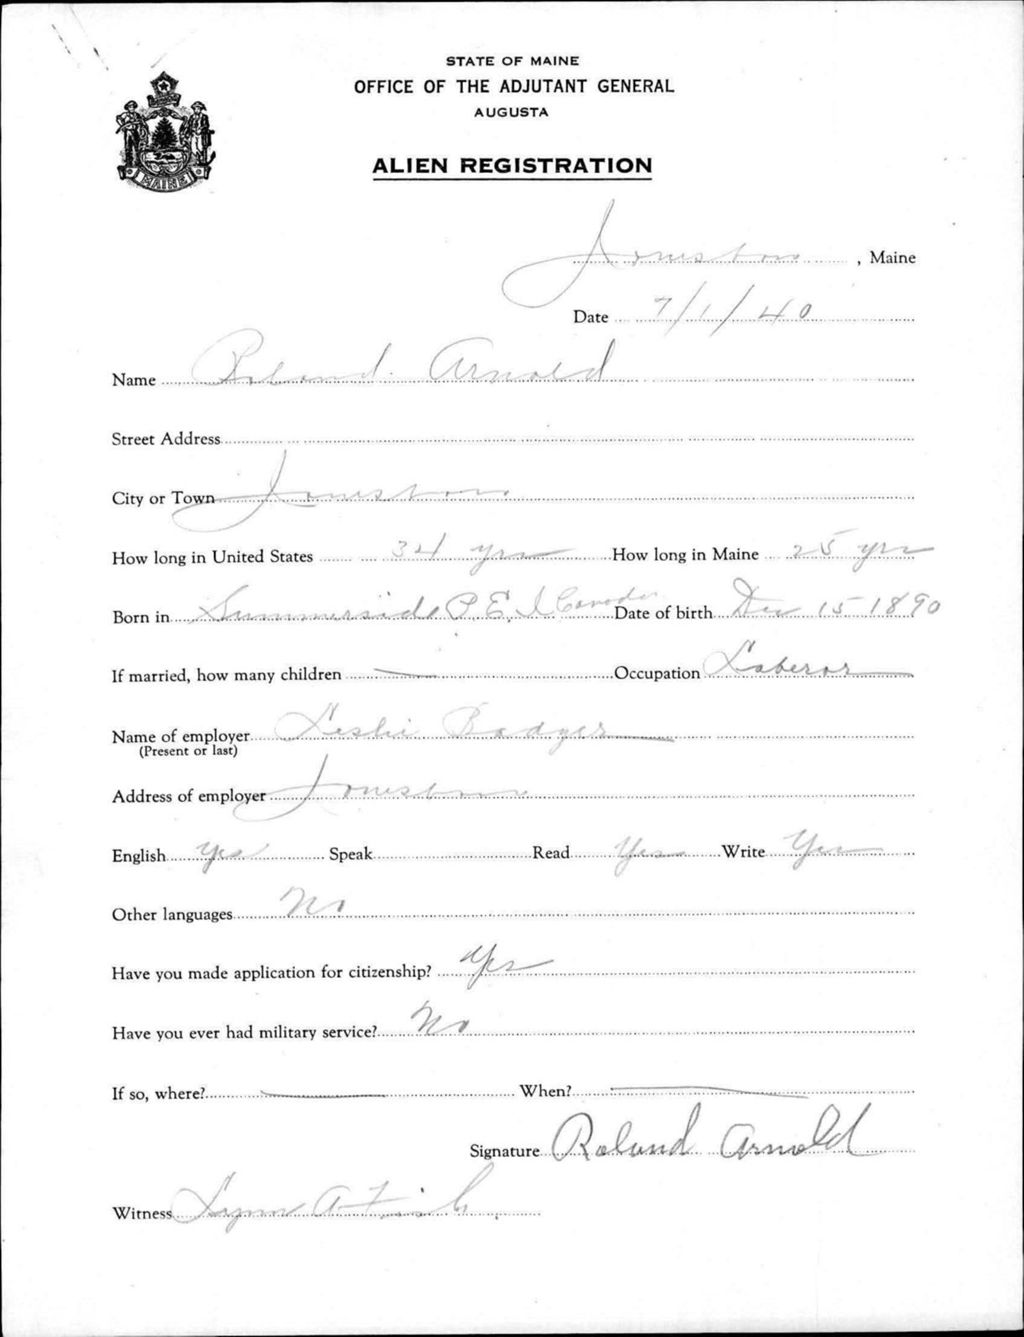 STATE OF MAINE
OFFICE OF THE ADJUTANT GENERAL
AUGUSTA
MAINE
ALIEN REGISTRATION
Jonesboro, Maine
Date 7/1/40
Name Roland Arnold
Street Address
City or Town Jonesboro
How long in United States 34 yrs How long in Maine 25 yrs
Born in Summerside P.E.I Canada Date of birth Dec 15 1890
If married, how many children — Occupation Laberor
Name of employer Leslie Badger
(Present or last)
Address of employer Jonesboro
English Yes Speak Read Yes Write Yes
Other languages No
Have you made application for citizenship? Yes
Have you ever had military service? No
If so, where? — When? —
Signature Roland Arnold
Witness Lynn A Fish